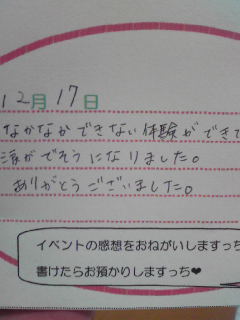 12月17日
なかなかできない体験ができて
涙がでそうになりました。
ありがとうございました。
イベントの感想をおねがいしますっち
書けたらお預かりしますっち♥